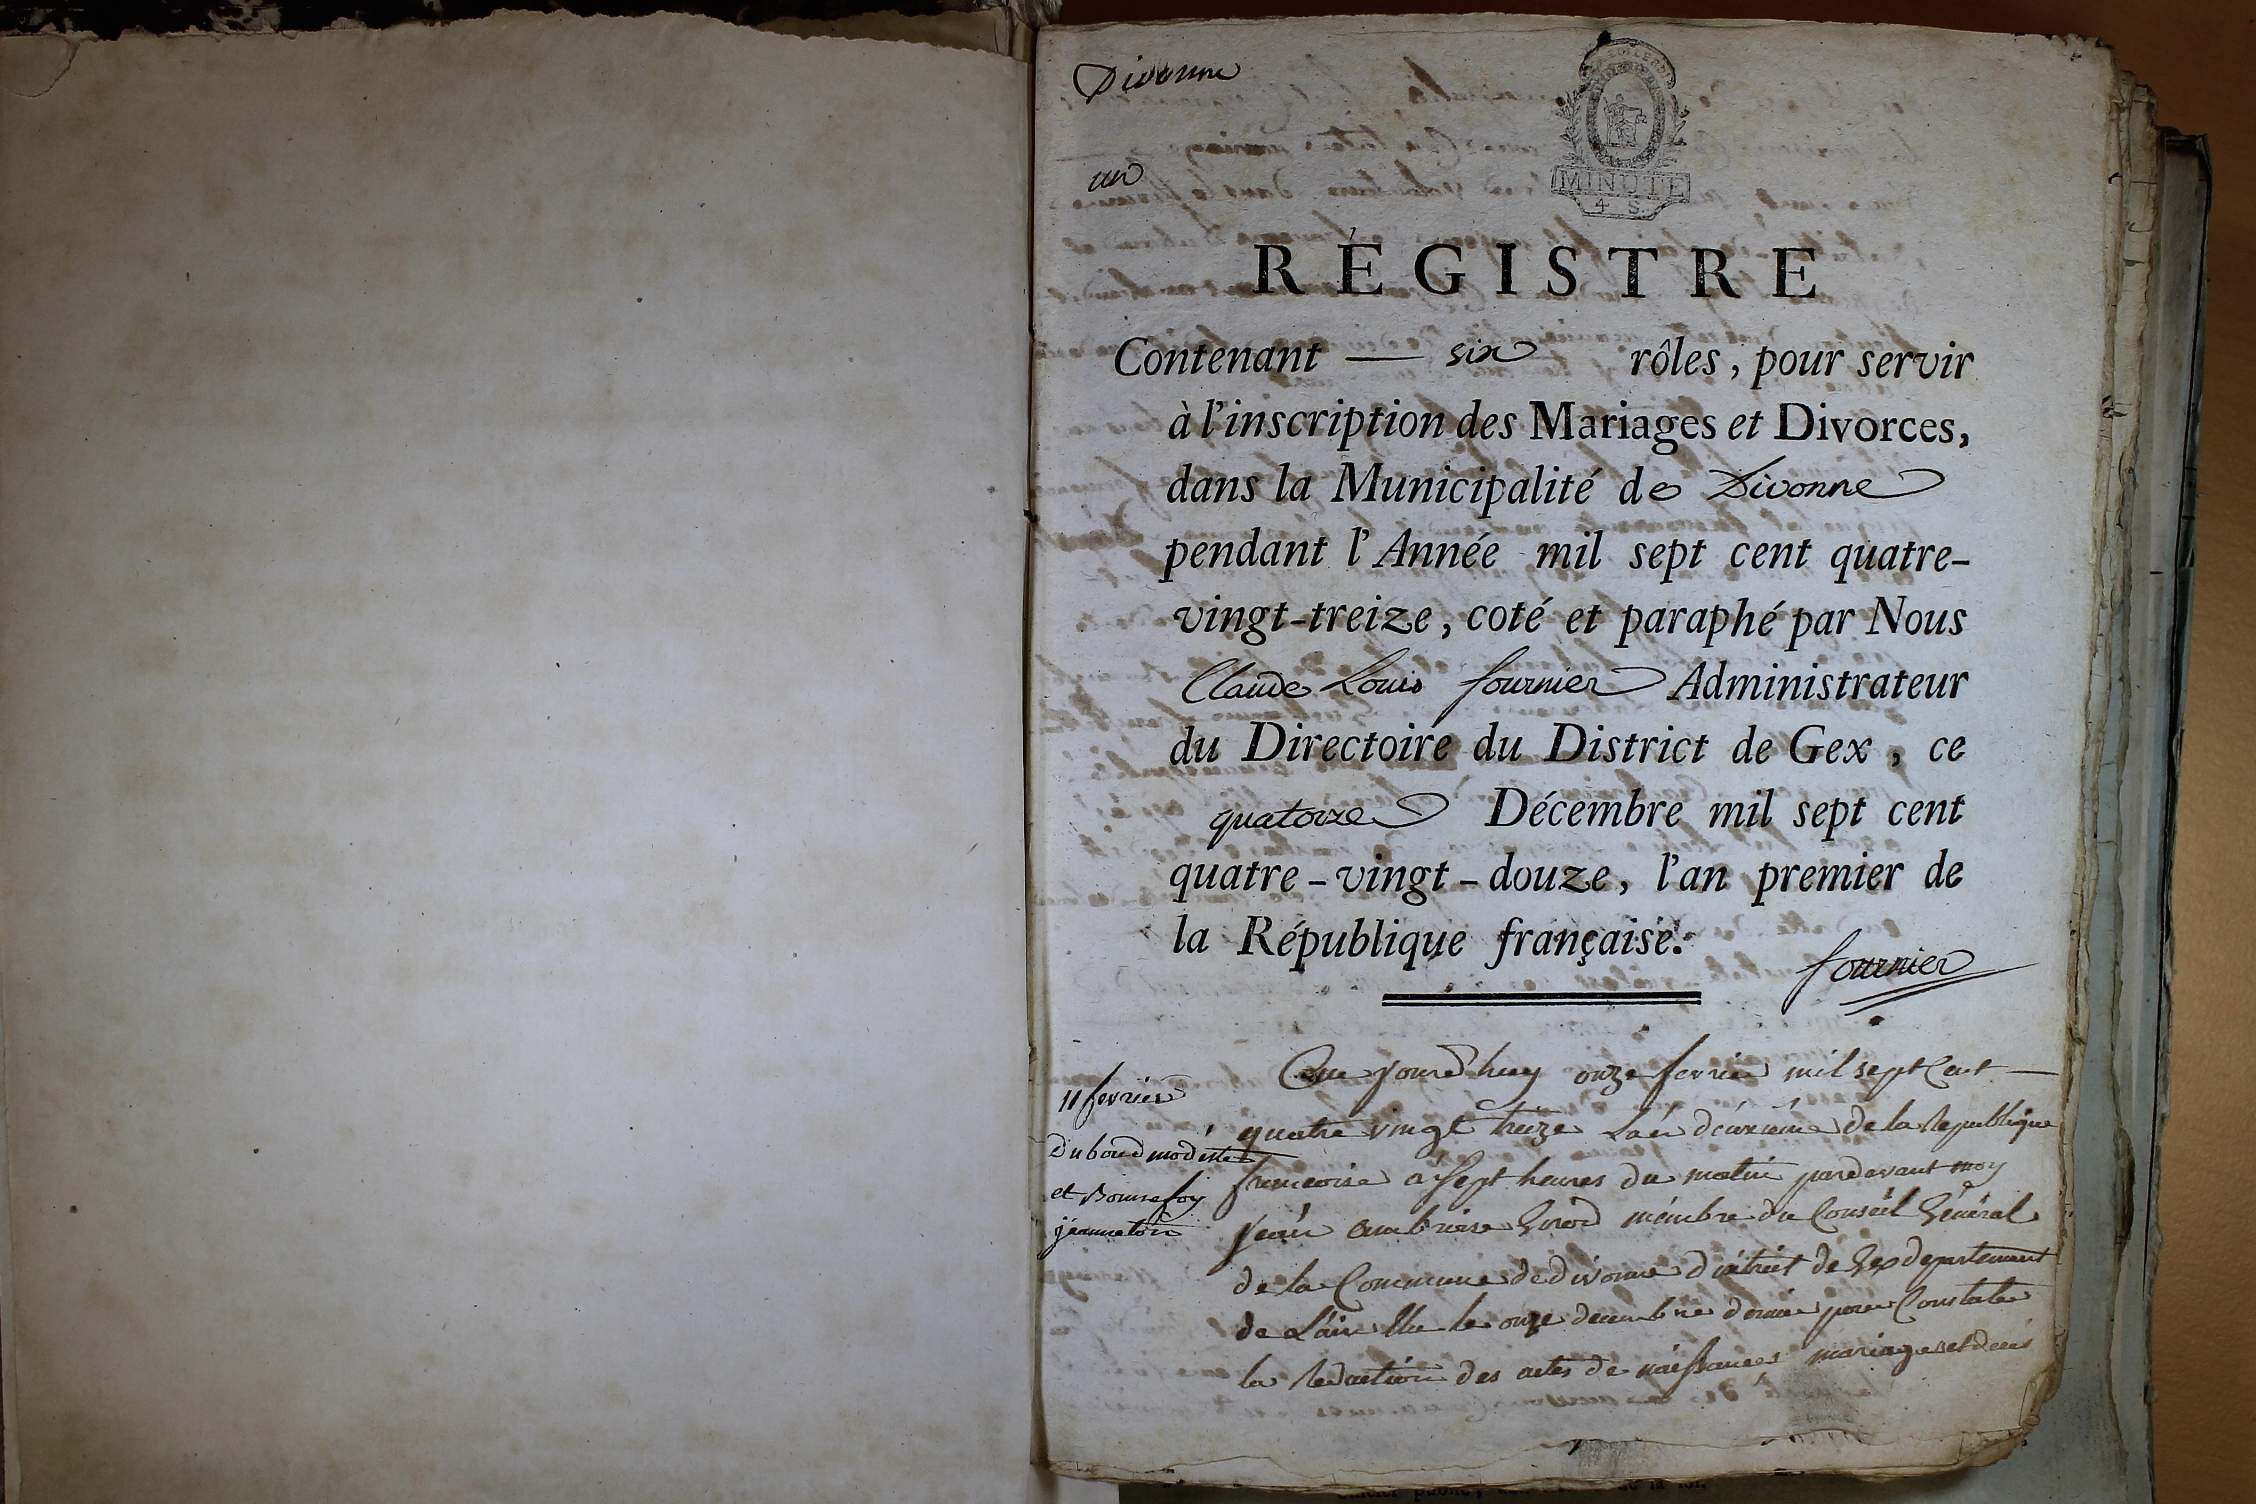 Divonne
un
MINUTE
4 S.
RÉGISTRE
Contenant — six rôles, pour servir
à l'inscription des Mariages et Divorces,
dans la Municipalité de Divonne
pendant l'Année mil sept cent quatre-
vingt-treize, coté et paraphé par Nous
Claude Louis fournier Administrateur
du Directoire du District de Gex, ce
quatorze Décembre mil sept cent
quatre-vingt-douze, l'an premier de
la République française.
fournier
11 fevrier
et Bonnefoy
jeanneton
Ce jourd'huy onze fevrier mil sept Cent
quatre vingt treize L'an deuxieme de la Republique
francoise a sept heures du matin pardevant moy
jean ambroise Girod membre du Conseil Général
de la Commune de divonne district de Gex departement
de L'ain Elu le onze decembre dernier pour Constater
la Redaction des actes de naissances mariages et deces